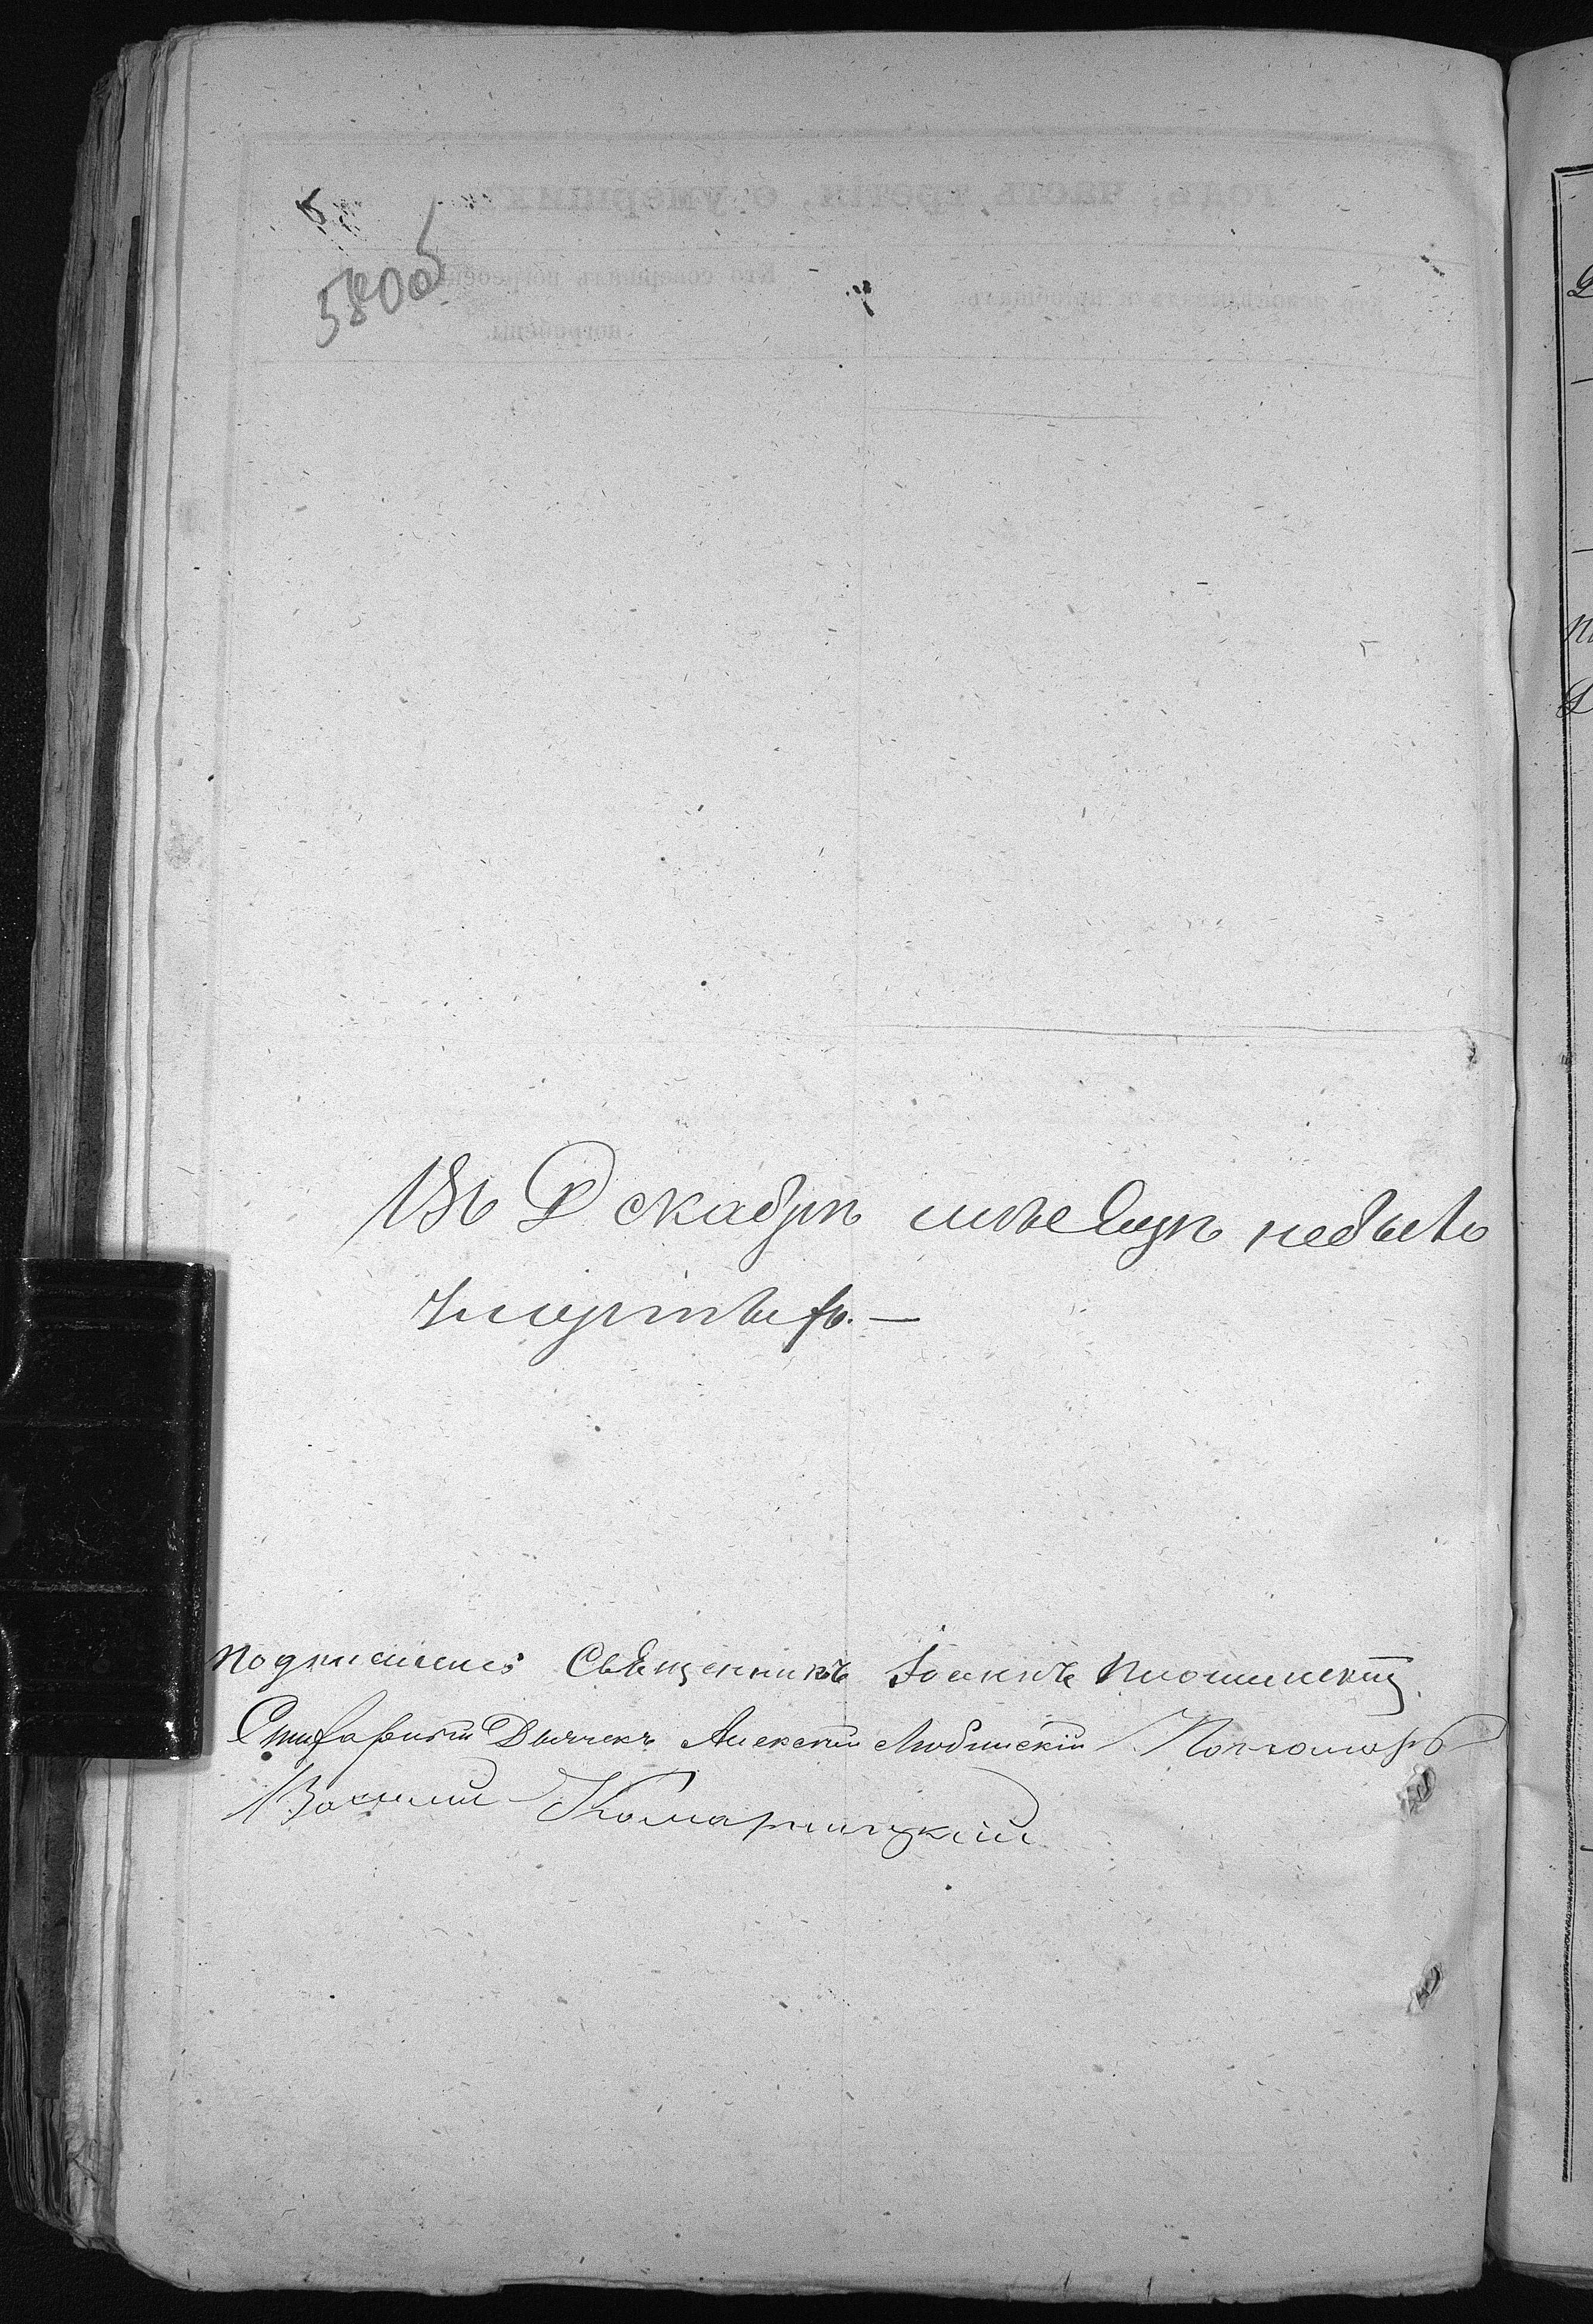 580об
Въ Декабрѣ мѣсецѣ небыло
умершыхъ. —
Подписались Священникъ Іоаннъ
Дьячекъ Алексѣй Любинскій Пономарь
Василий Комарницкій